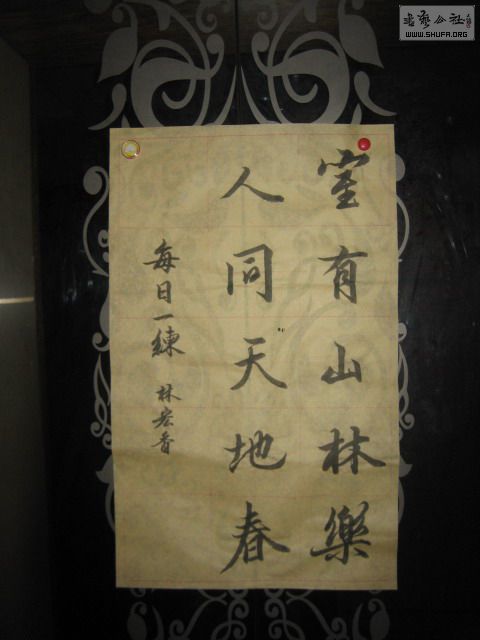 室有山林樂
人同天地春
每日一練 林宏香
书艺公社
WWW.SHUFA.ORG